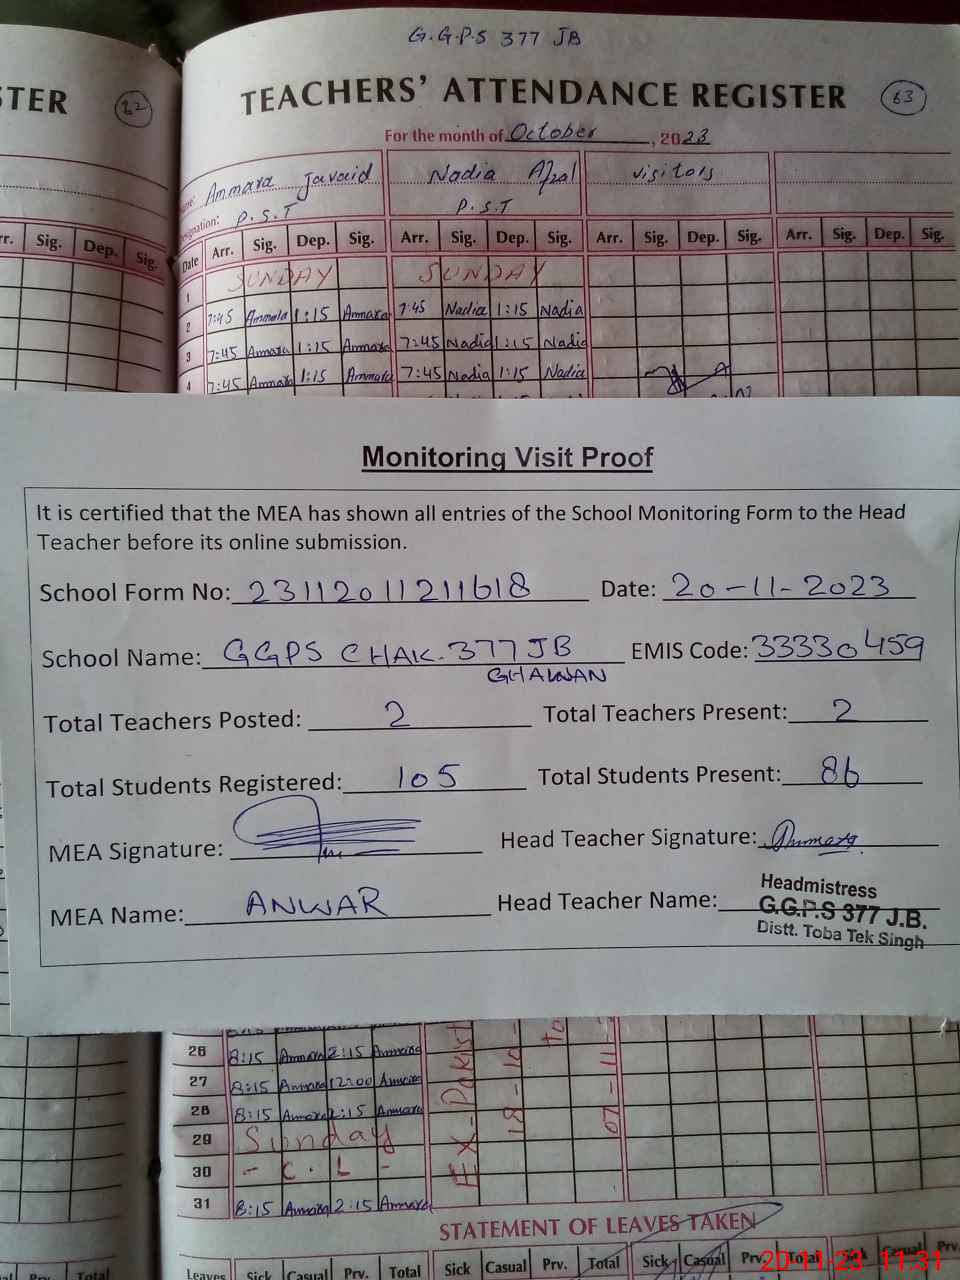 G.G.P.S 377 JB
STER 22
TEACHERS' ATTENDANCE REGISTER 63
For the month of October, 2023
Name: Ammara Javaid Nadia Afzal visitors
Designation: P.S.T P.S.T
rr. Sig. Dep. Sig. Date Arr. Sig. Dep. Sig. Arr. Sig. Dep. Sig. Arr. Sig. Dep. Sig. Arr. Sig. Dep. Sig.
1 SUNDAY SUNDAY
2 7:45 Ammara 1:15 Ammara 7:45 Nadia 1:15 Nadia
3 7:45 Ammara 1:15 Ammara 7:45 Nadia 1:15 Nadia
4 7:45 Ammara 1:15 Ammara 7:45 Nadia 1:15 Nadia
Monitoring Visit Proof
It is certified that the MEA has shown all entries of the School Monitoring Form to the Head
Teacher before its online submission.
School Form No: 23112011211618 Date: 20-11-2023
School Name: GGPS CHAK.377 JB EMIS Code: 33330459
GHALWAN
Total Teachers Posted: 2 Total Teachers Present: 2
Total Students Registered: 105 Total Students Present: 86
MEA Signature: Head Teacher Signature: Ammara
MEA Name: ANWAR Head Teacher Name:
Headmistress
G.G.P.S 377 J.B.
Distt. Toba Tek Singh
26 8:15 Ammara 2:15 Ammara
27 8:15 Ammara 12:00 Ammara
28 8:15 Ammara 2:15 Ammara
29 Sunday
30 - C. L -
31 8:15 Ammara 2:15 Ammara
EX-Pakist
18-10-
to
STATEMENT OF LEAVES TAKEN
Total Leaves Sick Casual Prv. Total Sick Casual Prv. Total Sick Casual Prv. Total Sic Casual Prv.
20-11-23 11:31